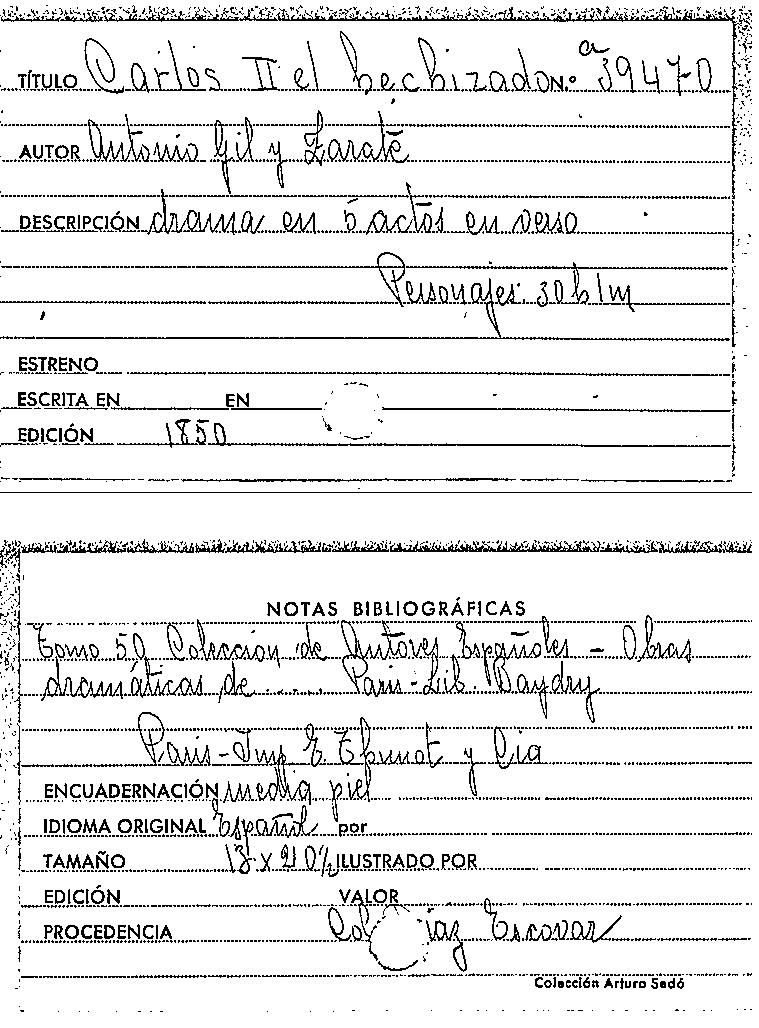 TÍTULO Carlos II el hechizado N.º 39470 a
AUTOR Antonio Gil y Zarate
DESCRIPCIÓN drama en 5 actos en verso
Personajes: 30 h 1 m
ESTRENO
ESCRITA EN EN
EDICIÓN 1850
NOTAS BIBLIOGRÁFICAS
Tomo 50 Colección de Autores Españoles - Obras
dramáticas de ..... Paris - Lib. Baydry
Paris - Imp E. Thunot y Cia
ENCUADERNACIÓN media piel
IDIOMA ORIGINAL Español por
TAMAÑO 13 x 21 ILUSTRADO POR
EDICIÓN VALOR
PROCEDENCIA Col iaz Escovar
Colección Arturo Sedó